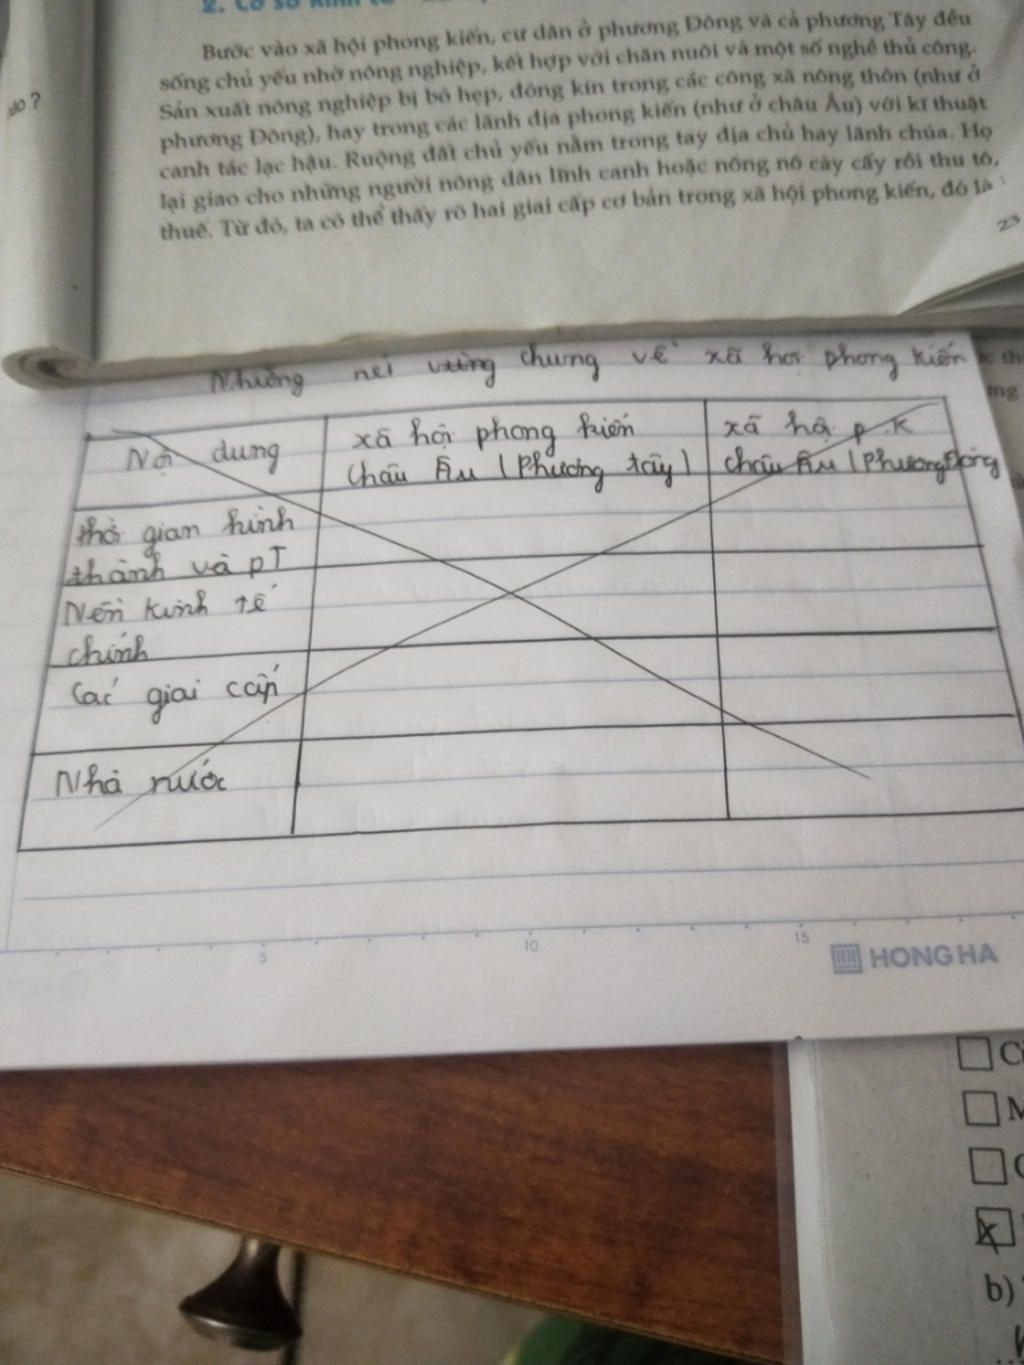 2. Cơ sở kinh tế
Bước vào xã hội phong kiến, cư dân ở phương Đông và cả phương Tây đều
sống chủ yếu nhờ nông nghiệp, kết hợp với chăn nuôi và một số nghề thủ công.
Sản xuất nông nghiệp bị bó hẹp, đóng kín trong các công xã nông thôn (như ở
phương Đông), hay trong các lãnh địa phong kiến (như ở châu Âu) với kĩ thuật
canh tác lạc hậu. Ruộng đất chủ yếu nằm trong tay địa chủ hay lãnh chúa. Họ
lại giao cho những người nông dân lĩnh canh hoặc nông nô cày cấy rồi thu tô,
thuế. Từ đó, ta có thể thấy rõ hai giai cấp cơ bản trong xã hội phong kiến, đó là
nào ?
23
Những nét chung về xã hội phong kiến
Nội dung
xã hội phong kiến
Châu Âu (Phương tây)
xã hội p.K
châu Âu (Phương Đông
thời gian hình
thành và pT
Nền kinh tế
chính
Các giai cấp
Nhà nước
5 10 15
HONG HA
b)